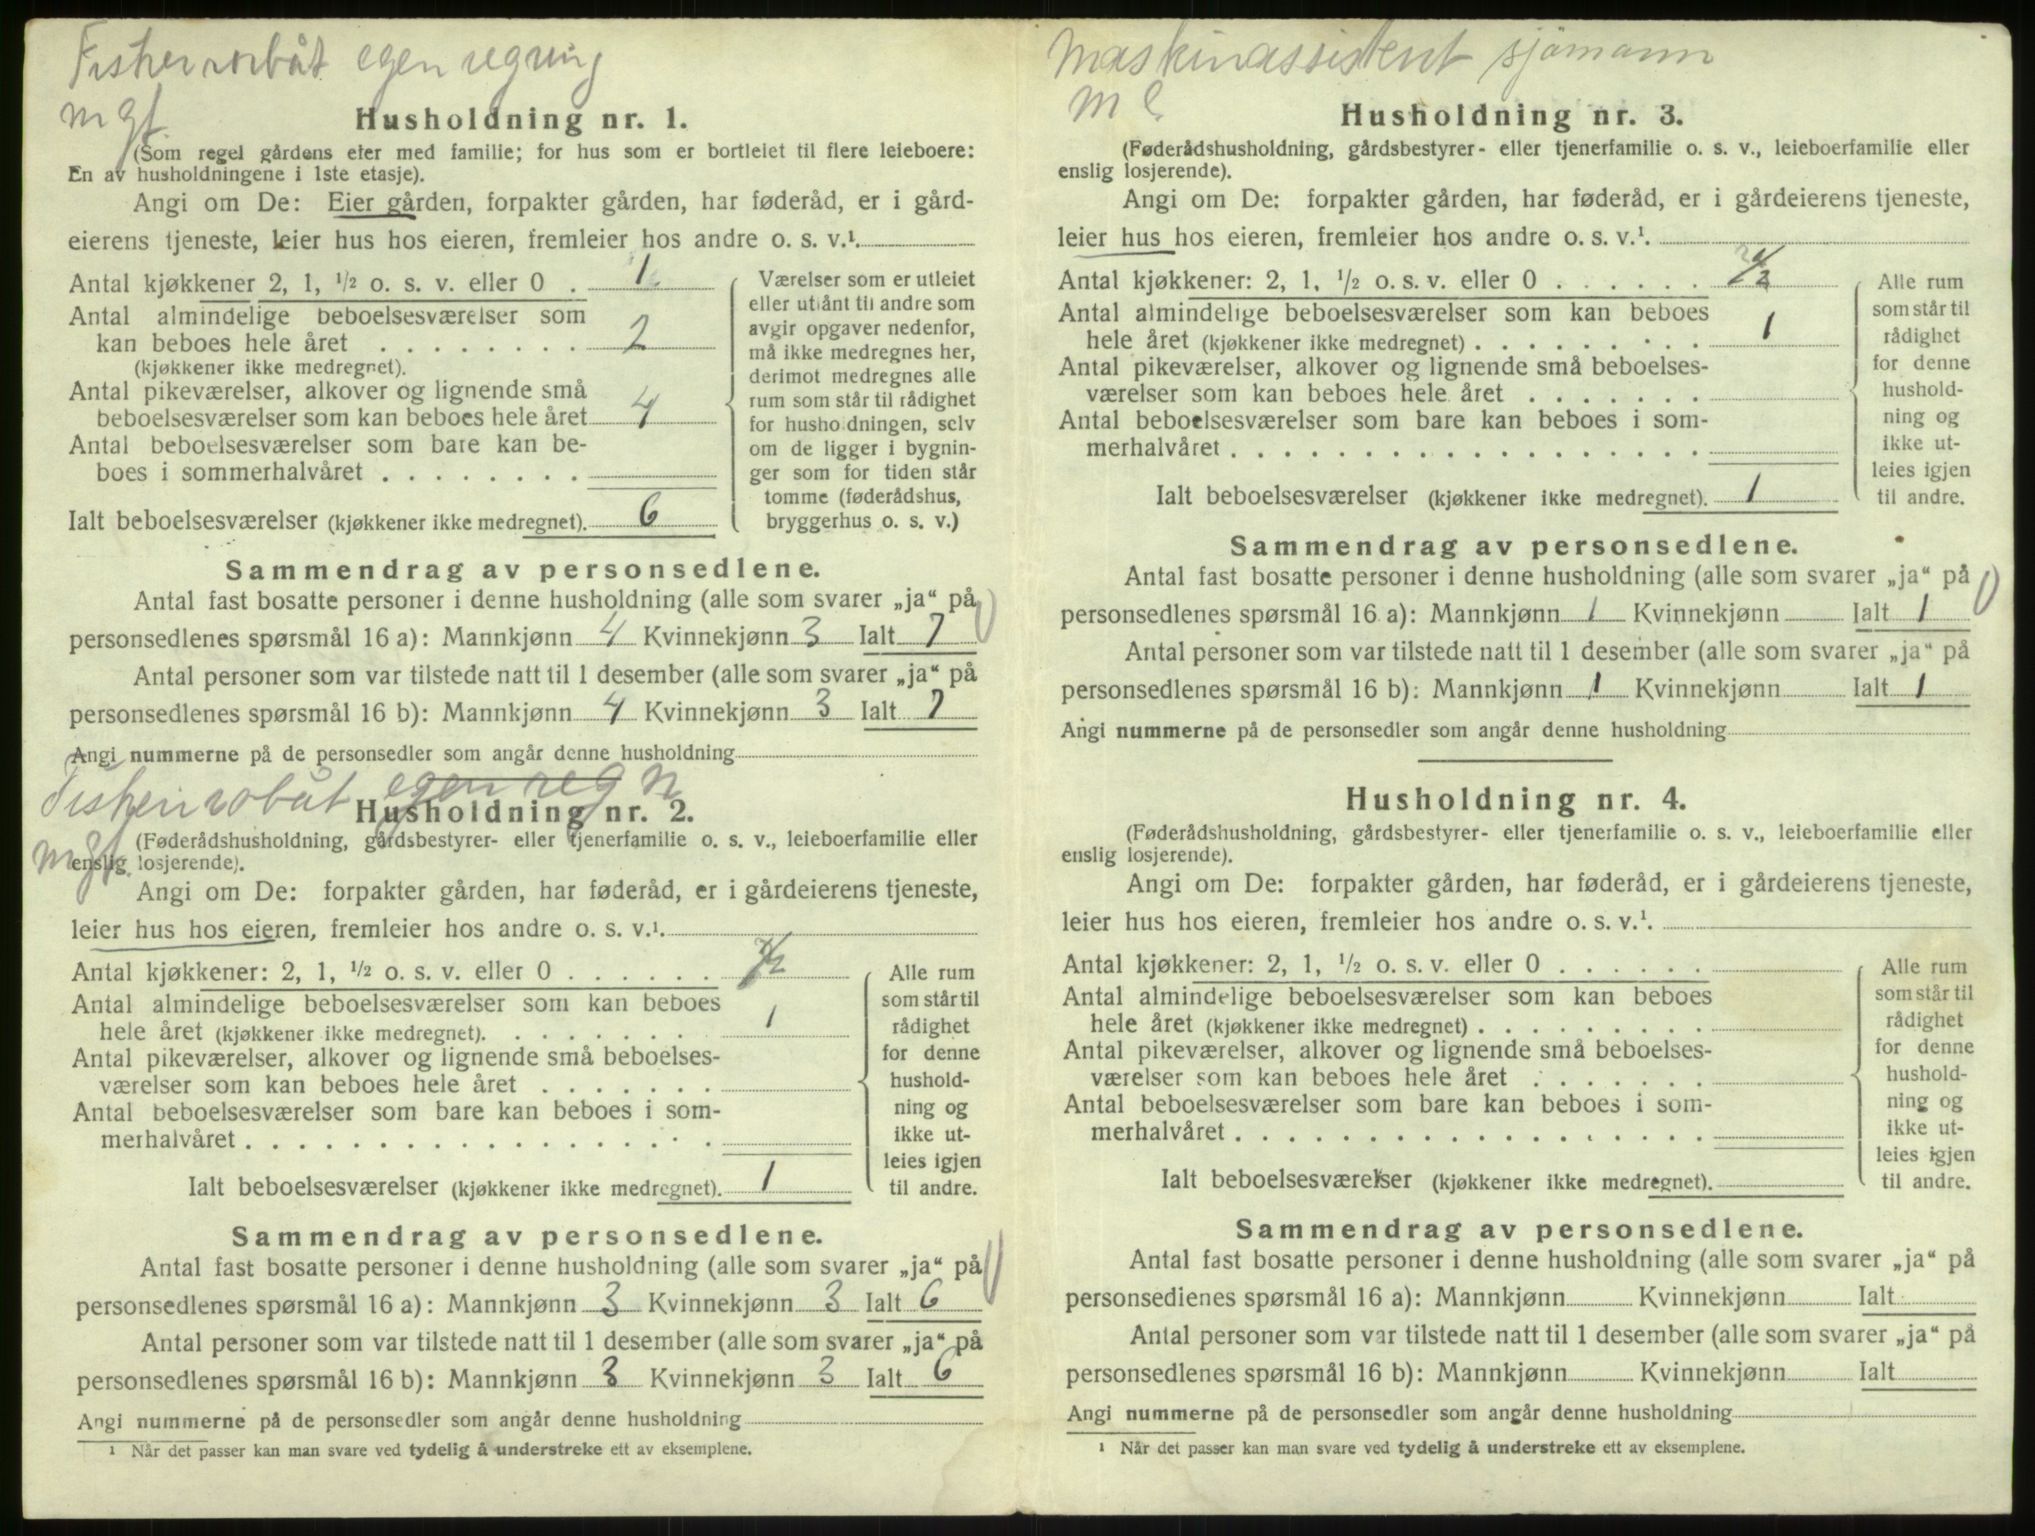 Fisker robåt egen regning
m gf.
Husholdning nr. 1.
(Som regel gårdens eier med familie; for hus som er bortleiet til flere leieboere:
En av husholdningene i 1ste etasje).
Angi om De: Eier gården, forpakter gården, har føderåd, er i gård-
eierens tjeneste, leier hus hos eieren, fremleier hos andre o. s. v.¹.
Antal kjøkkener 2, 1, ½ o. s. v. eller 0 . 1
Antal almindelige beboelsesværelser som
kan beboes hele året . . . . . . . . 2
(kjøkkener ikke medregnet).
Antal pikeværelser, alkover og lignende små
beboelsesværelser som kan beboes hele året 4
Antal beboelsesværelser som bare kan be-
boes i sommerhalvåret . . . . . . . .
Ialt beboelsesværelser (kjøkkener ikke medregnet). 6
Værelser som er utleiet
eller utlånt til andre som
avgir opgaver nedenfor,
må ikke medregnes her,
derimot medregnes alle
rum som står til rådighet
for husholdningen, selv
om de ligger i bygnin-
ger som for tiden står
tomme (føderådshus,
bryggerhus o. s. v.)
Sammendrag av personsedlene.
Antal fast bosatte personer i denne husholdning (alle som svarer „ja“ på
personsedlenes spørsmål 16 a): Mannkjønn 4 Kvinnekjønn 3 Ialt 7
Antal personer som var tilstede natt til 1 desember (alle som svarer „ja“ på
personsedlenes spørsmål 16 b): Mannkjønn 4 Kvinnekjønn 3 Ialt 7
Angi nummerne på de personsedler som angår denne husholdning
Fisker robåt egen reg N
m gf.
Husholdning nr. 2.
(Føderådshusholdning, gårdsbestyrer- eller tjenerfamilie o. s. v., leieboerfamilie eller
enslig losjerende).
Angi om De: forpakter gården, har føderåd, er i gårdeierens tjeneste,
leier hus hos eieren, fremleier hos andre o. s. v.¹.
Antal kjøkkener: 2, 1, ½ o. s. v. eller 0 . . . . . .
Antal almindelige beboelsesværelser som kan beboes
hele året (kjøkkener ikke medregnet). . . . . . . . 1
Antal pikeværelser, alkover og lignende små beboelses-
værelser som kan beboes hele året . . . . . . .
Antal beboelsesværelser som bare kan beboes i som-
merhalvåret . . . . . . . . . . . . . . . . . .
Ialt beboelsesværelser (kjøkkener ikke medregnet). 1
Alle rum
som står til
rådighet
for denne
hushold-
ning og
ikke ut-
leies igjen
til andre.
Sammendrag av personsedlene.
Antal fast bosatte personer i denne husholdning (alle som svarer „ja“ på
personsedlenes spørsmål 16 a): Mannkjønn 3 Kvinnekjønn 3 Ialt 6
Antal personer som var tilstede natt til 1 desember (alle som svarer „ja“ på
personsedlenes spørsmål 16 b): Mannkjønn 3 Kvinnekjønn 3 Ialt 6
Angi nummerne på de personsedler som angår denne husholdning
¹ Når det passer kan man svare ved tydelig å understreke ett av eksemplene.
Maskinassistent sjømann
m
Husholdning nr. 3.
(Føderådshusholdning, gårdsbestyrer- eller tjenerfamilie o. s. v., leieboerfamilie eller
enslig losjerende).
Angi om De: forpakter gården, har føderåd, er i gårdeierens tjeneste,
leier hus hos eieren, fremleier hos andre o. s. v.¹.
Antal kjøkkener: 2, 1, ½ o. s. v. eller 0 . . . . . .
Antal almindelige beboelsesværelser som kan beboes
hele året (kjøkkener ikke medregnet) . . . . . . . . . 1
Antal pikeværelser, alkover og lignende små beboelses-
værelser som kan beboes hele året . . . . . . .
Antal beboelsesværelser som bare kan beboes i som-
merhalvåret . . . . . . . . . . . . . . . . . .
Ialt beboelsesværelser (kjøkkener ikke medregnet). 1
Alle rum
som står til
rådighet
for denne
hushold-
ning og
ikke ut-
leies igjen
til andre.
Sammendrag av personsedlene.
Antal fast bosatte personer i denne husholdning (alle som svarer „ja“ på
personsedlenes spørsmål 16 a): Mannkjønn 1 Kvinnekjønn Ialt 1
Antal personer som var tilstede natt til 1 desember (alle som svarer „ja“ på
personsedlenes spørsmål 16 b): Mannkjønn 1 Kvinnekjønn Ialt 1
Angi nummerne på de personsedler som angår denne husholdning
Husholdning nr. 4.
(Føderådshusholdning, gårdsbestyrer- eller tjenerfamilie o. s. v., leieboerfamilie eller
enslig losjerende).
Angi om De: forpakter gården, har føderåd, er i gårdeierens tjeneste,
leier hus hos eieren, fremleier hos andre o. s. v.¹.
Antal kjøkkener: 2, 1, ½ o. s. v. eller 0 . . . . . .
Antal almindelige beboelsesværelser som kan beboes
hele året (kjøkkener ikke medregnet) . . . . . . . . .
Antal pikeværelser, alkover og lignende små beboelses-
værelser som kan beboes hele året . . . . . . .
Antal beboelsesværelser som bare kan beboes i som-
merhalvåret . . . . . . . . . . . . . . . . . .
Ialt beboelsesværelser (kjøkkener ikke medregnet).
Alle rum
som står til
rådighet
for denne
hushold-
ning og
ikke ut-
leies igjen
til andre.
Sammendrag av personsedlene.
Antal fast bosatte personer i denne husholdning (alle som svarer „ja“ på
personsedlenes spørsmål 16 a): Mannkjønn Kvinnekjønn Ialt
Antal personer som var tilstede natt til 1 desember (alle som svarer „ja“ på
personsedlenes spørsmål 16 b): Mannkjønn Kvinnekjønn Ialt
Angi nummerne på de personsedler som angår denne husholdning
¹ Når det passer kan man svare ved tydelig å understreke ett av eksemplene.